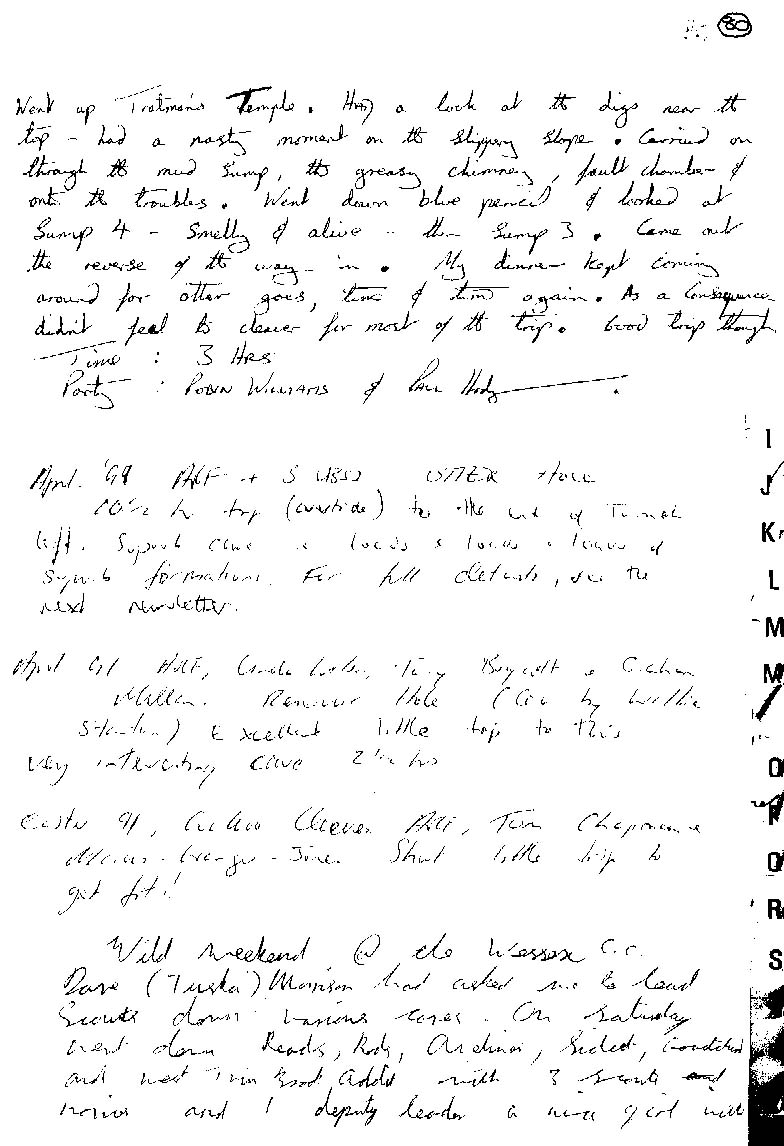 80
Went up Tratman's Temple. Had a look at th digs near th
top - had a nasty moment on th slippery slope. Carried on
through th mud sump, th greasy chimney, fault chamber &
onto th troubles. Went down blue pencil & looked at
Sump 4 - Smelly & alive - then Sump 3. Came out
the reverse of th way in. My dinner kept coming
around for other goes, time & time again. As a Consequence
didn't feel to clever for most of th trip. Good trip though
Time : 3 HRS
Party : ROBIN WILLIAMS & Paul
April. + Hole
10½ hr trip (overtide) to the end of
left. Superb cave & loads & loads & loads of
superb formations. For full details, see the
next newsletter.
April 91 Tony Boycott &
Reservoir Hole (Cave by Willie
Stanton) Excellent little trip to this
very interesting cave 2½ hrs
Easter 91, Cuckoo Cleeves Tim Chapman &
Short little trip to
get fit!
Wild weekend @ the Wessex C.C.
Dave (Tuska) Morrison had asked me to lead
Scouts down various caves. On Saturday
went down Reads, Rods, Sidcot, Goatchurch
and with 3 scouts and
and 1 deputy leader a nice girl
I
J
K
L
M
M
O
Q
R
S